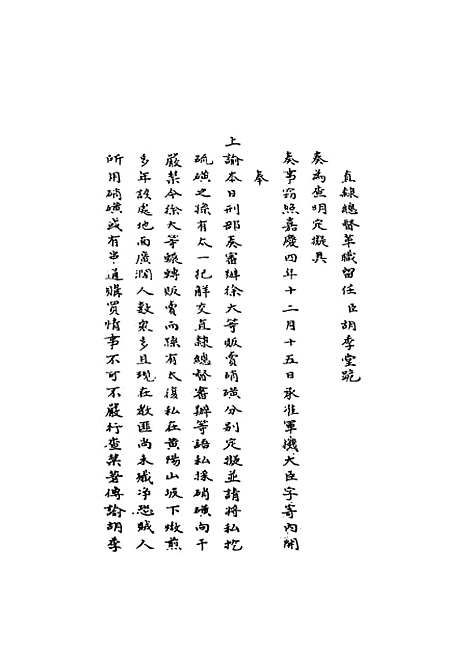 直隸總督革職留任臣胡季堂跪
奏為查明定擬具
奏事竊照嘉慶四年十二月十五日承准軍機大臣字寄內開
奉
上諭本日刑部奏審辦徐大等販賣硝磺分別定擬並請將私挖
硫磺之孫有太一犯解交直隸總督審辦等語私採硝磺向干
嚴禁今徐大等輾轉販賣而孫有太復私在黃陽山坡下墩煎
多年該處地面廣濶人數眾多且現在教匪尚未殲淨恐賊人
所用硝磺或有串通購買情事不可不嚴行查禁著傳諭胡季